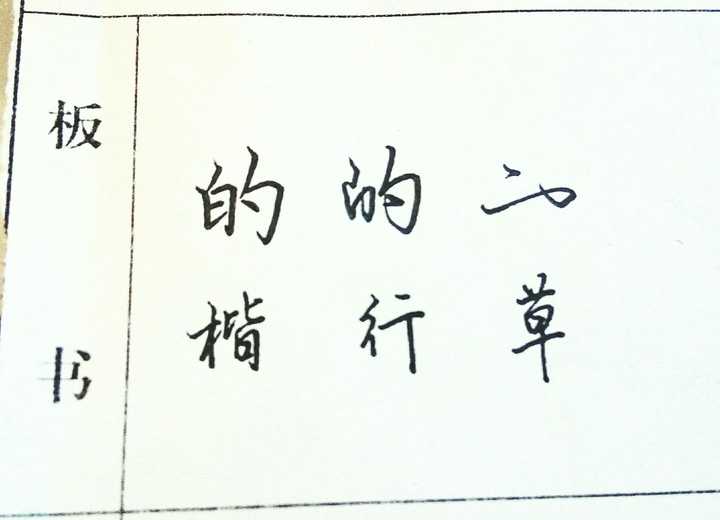 板书
的 的 的
楷 行 草